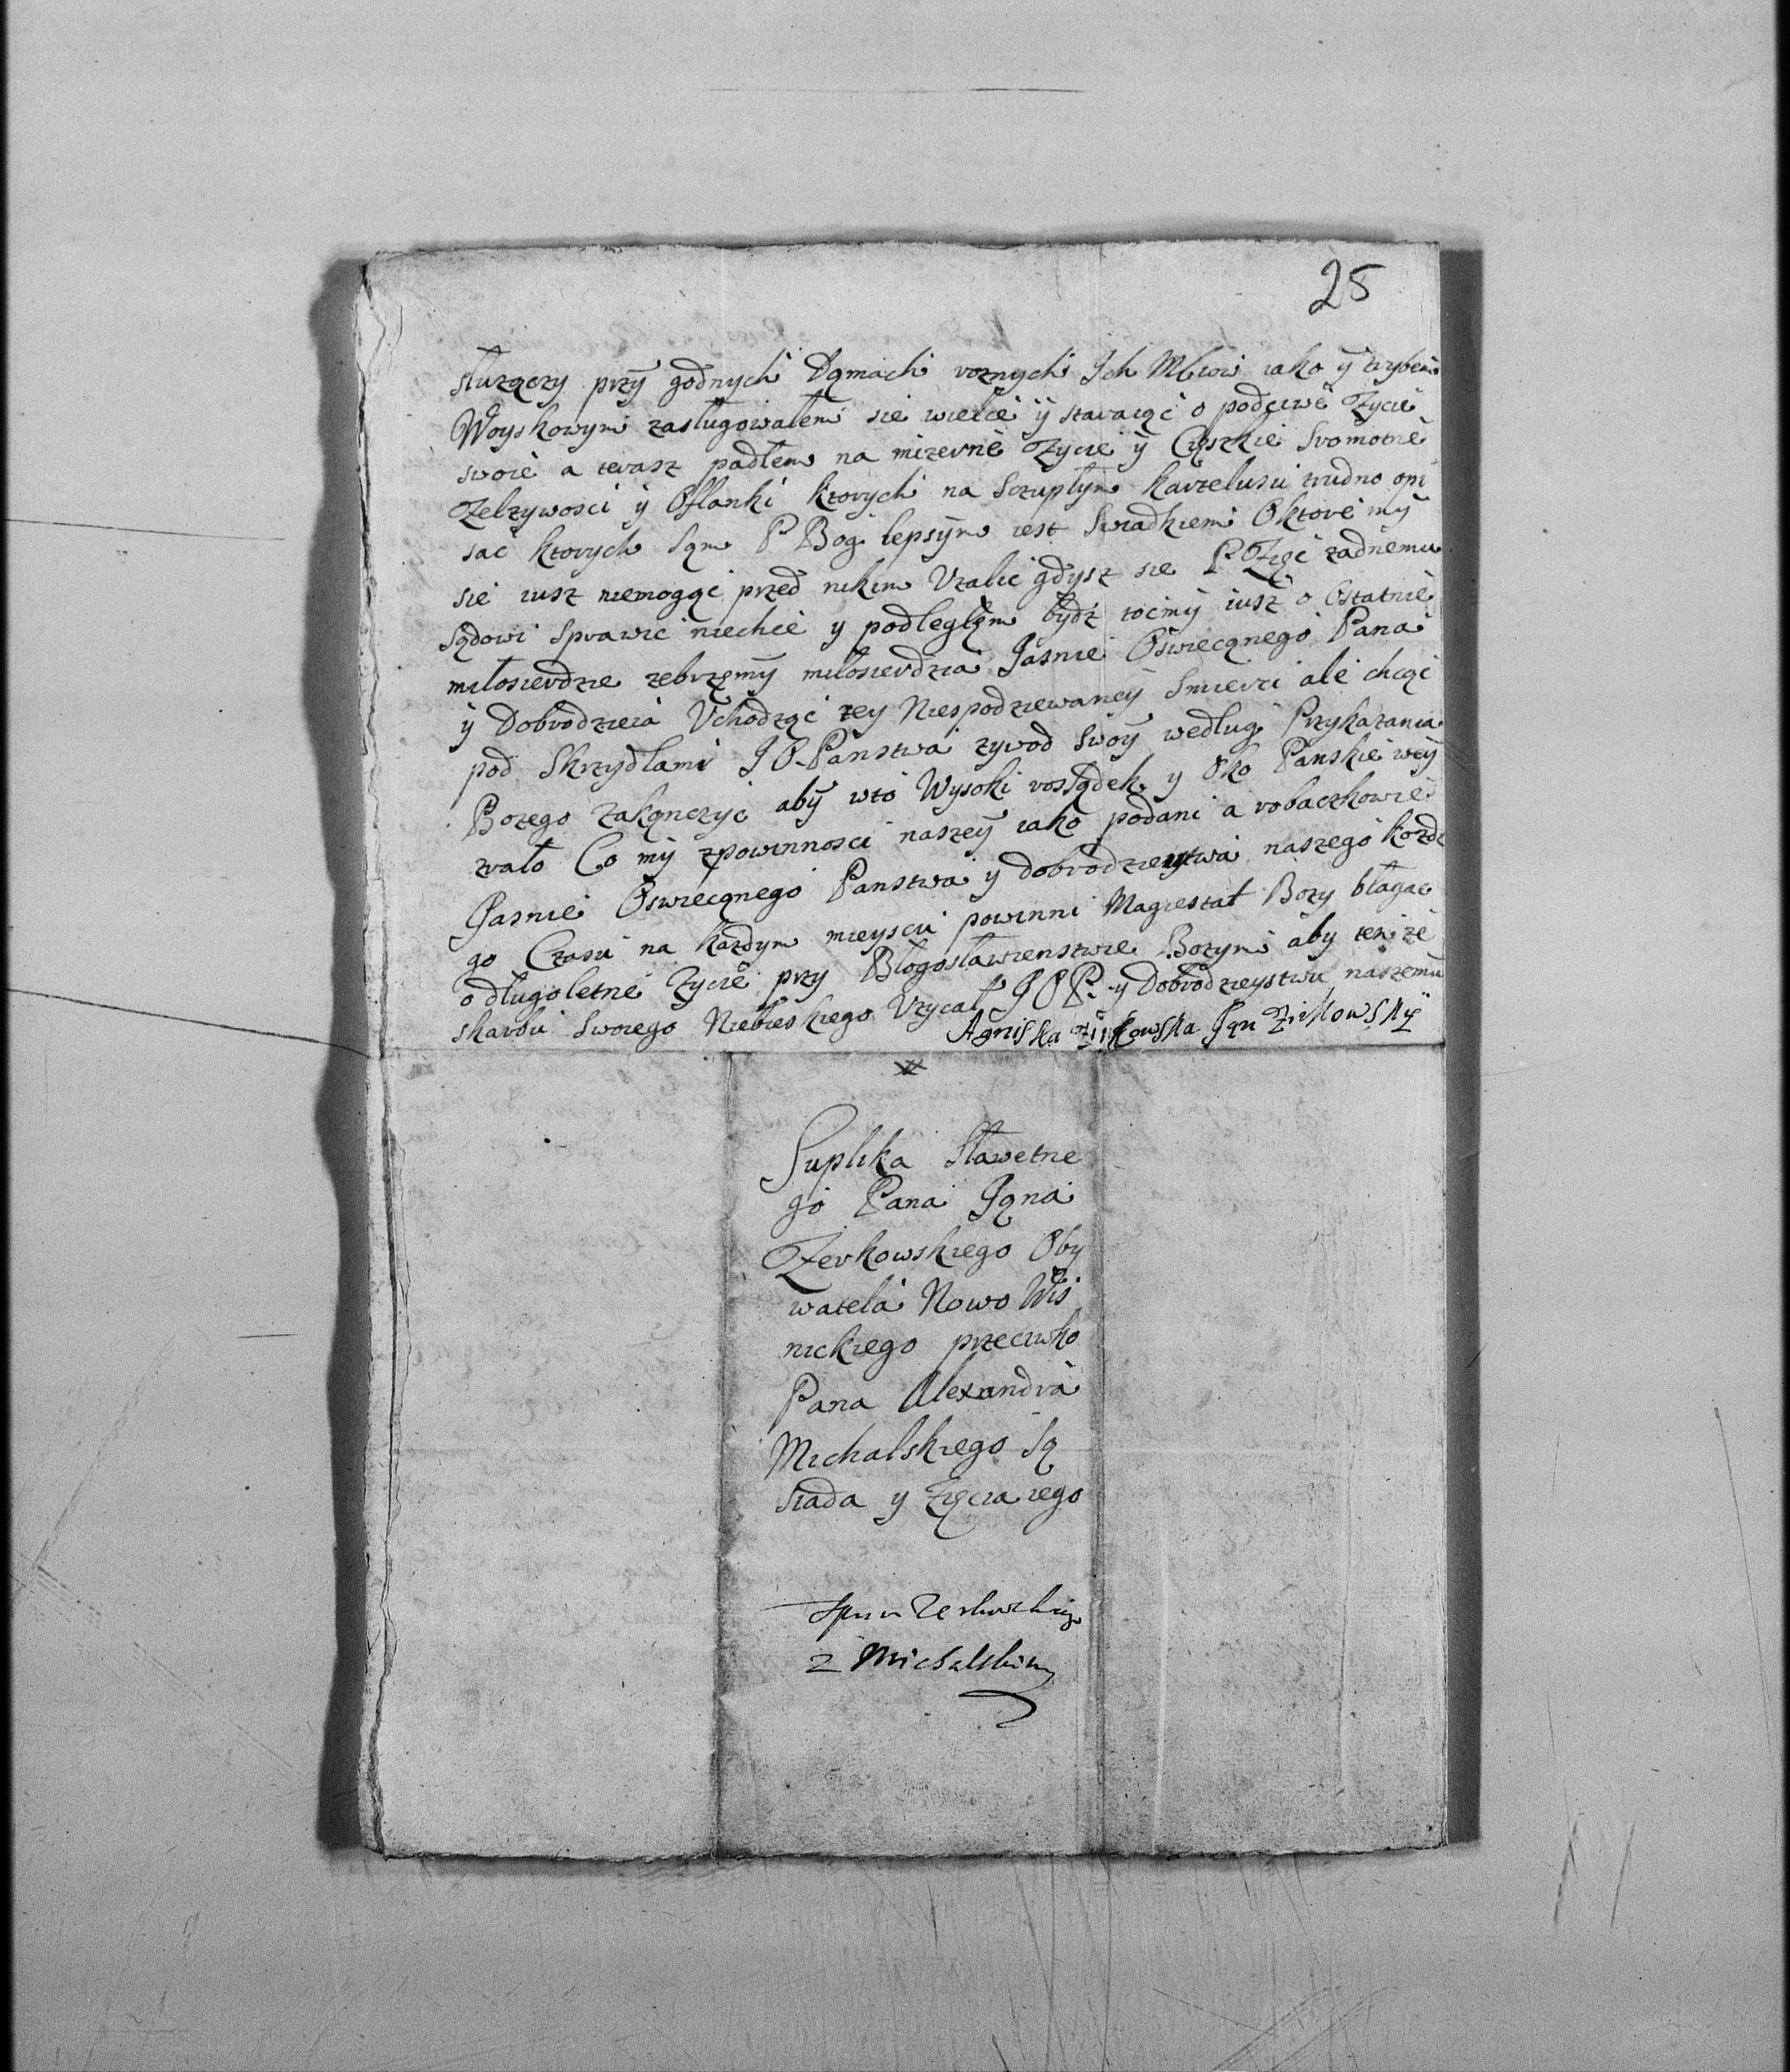 25
słuzączy przy godnych Dąmach roznych Ich Mciow iako y trybem
Woyskowym zasługowałem sie wielce y staraiąc o podcciwe Zycie
swoie a terasz padłem na mizerne Zycie y Cięszkie Sromotne
Zelzywosci y Oflanki ktorych na Sczupłym karzelusu trudno opi
sac ktorych Sąm P Bog lepsym iest Swiadkiem Oktore my
sie iusz niemogąc przed nikim Uzalic gdysz sie P. Zięc zadnemu
sądowi Sprawic niechce y podległęm bydz tocimy iusz o Ostatnie
miłosierdzie zebrzęmy miłosierdzia Jasnie Oswiecąnego Pana
y Dobrodzieia Uchodząc tey Niespodziewaney Smierci ale chcąc
pod Skrzydłami J O Panstwa zywod Swoy według Przykazania
Bozego Zakąnczyc aby wto Wysoki rossądek y Oko Panskie wey
rzało Co my zpowinnosci naszey iako podani a robaczkowie
Jasnie Oswiecąnego Panstwa y dobrodzieystwa naszego kozde
go Czasu na kazdym mieyscu powinni Magiestat Bozy błagac
o długoletne Zycie przy Błogosławienstwie Bozym aby tenze
skarbu Swoiego Niebieskiego Uzycał J O P. y Dobrodzieystwu naszemu
Agniska Zirkowska Jąn Zirkowsky
Suplika Sławetne
go Pana Jąna
Zerkowskiego Oby
watela Nowo Wis
nickiego przeciwko
Pana Alexandra
Michalskiego Są
siada y Zięcia iego
Zerkowskiego
z Michalskim